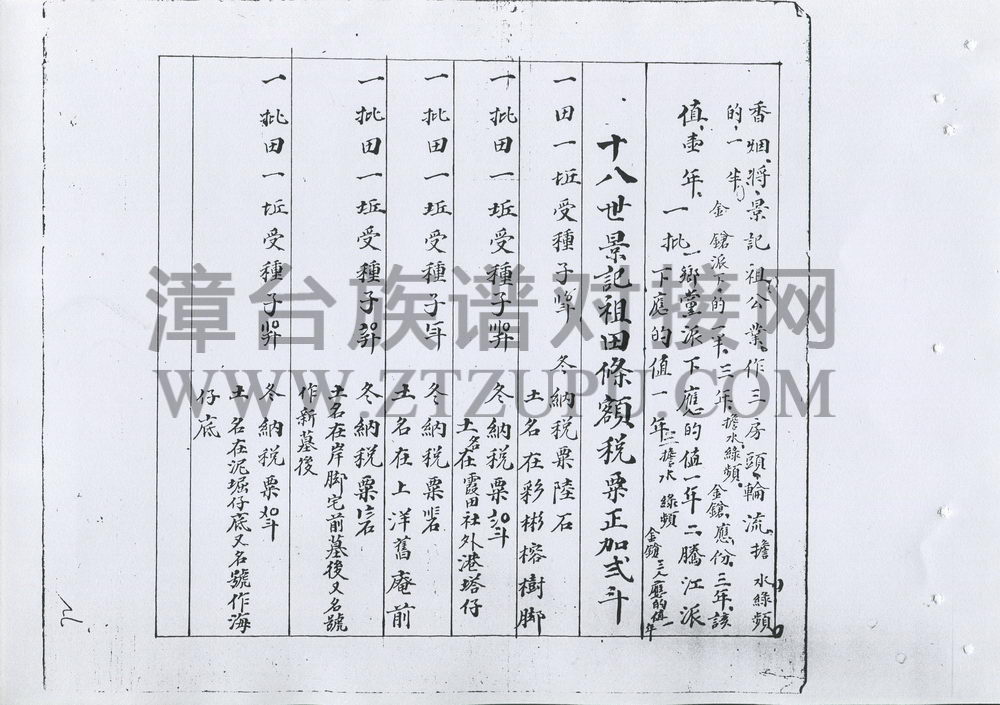 香烟、將、景記祖公業、作三房頭、輪流、擔水綠頻
的、一半、金鎗派下、的一半、三年、擔水、綠頻。金鎗、應、份、三年、該
值、壷年、一批一鄉黨派下應的值一年二騰江派
下應的值一年三擔水綠頻金鎗三人應的值一年
十八世景記祖田條額税粟正加弍斗
一田一坵受種子 冬納税粟陸石
土名在彩彬榕樹脚
一批田一坵受種子 冬納税粟 斗
土名在霞田社外港塔仔
一批田一坵受種子 冬納税粟
土名在上洋舊庵前
一批田一坵受種子 冬納税粟
土名在岸脚宅前墓後又名號
作新墓後
一批田一坵受種子 冬納税粟
土名在泥堀仔底又名號作海
仔底
漳台族谱对接网
WWW.ZTZUPU.COM